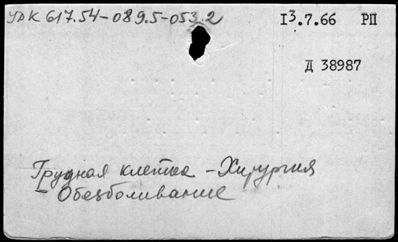 УДК 617.54-089.5-053.2
13.7.66 РП
Д 38987
Грудная клетка - Хирургия
- Обезболивание